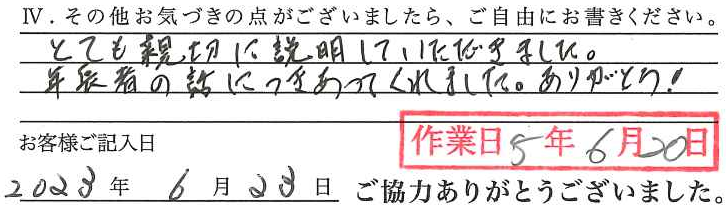 Ⅳ．その他お気づきの点がございましたら、ご自由にお書きください。
とても親切に説明していただきました。
年長者の話につきあってくれました。ありがとう！
お客様ご記入日
作業日 5年6月20日
2023年 6月23日 ご協力ありがとうございました。